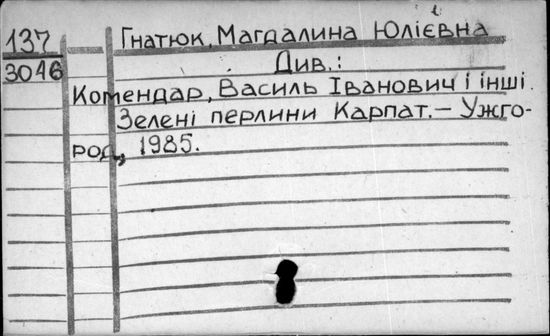 137 Гнатюк, Магдалина Юлієвна
3046 Див.:
Комендар, Василь Іванович і інші.
Зелені перлини Карпат. – Ужго-
род, 1985.